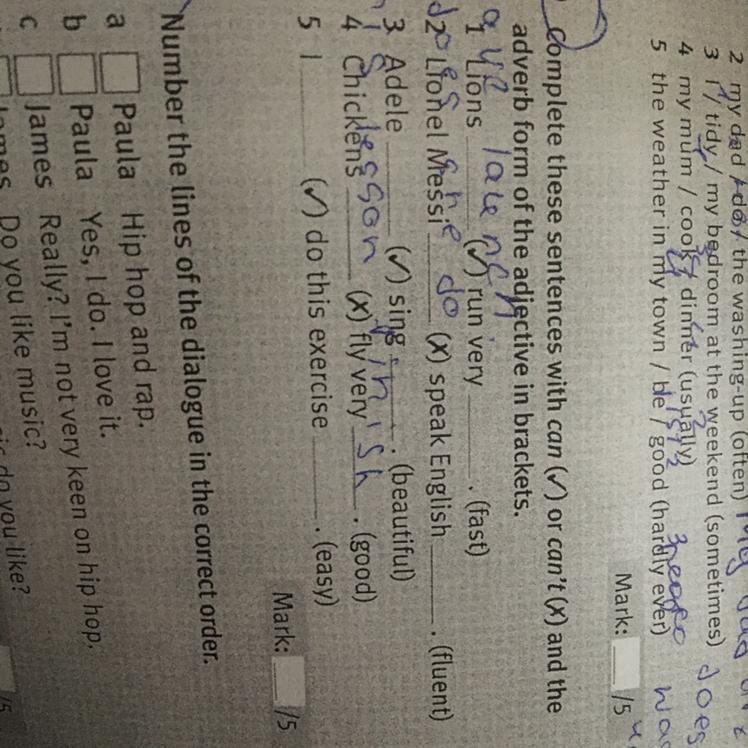 2 my dad / do / the washing-up (often)
3 I / tidy / my bedroom at the weekend (sometimes)
4 my mum / cook / dinner (usually)
5 the weather in my town / be / good (hardly ever)
Mark: /5
Complete these sentences with can (✓) or can't (x) and the
adverb form of the adjective in brackets.
1 Lions ______ (✓) run very ______. (fast)
2 Lionel Messi ______ (x) speak English ______. (fluent)
3 Adele ______ (✓) sing ______. (beautiful)
4 Chickens ______ (x) fly very ______. (good)
5 I ______ (✓) do this exercise ______. (easy)
Mark: /5
Number the lines of the dialogue in the correct order.
a Paula Hip hop and rap.
b Paula Yes, I do. I love it.
c James Really? I'm not very keen on hip hop.
James Do you like music?
do you like?
/5
she do
lesson
finish
does